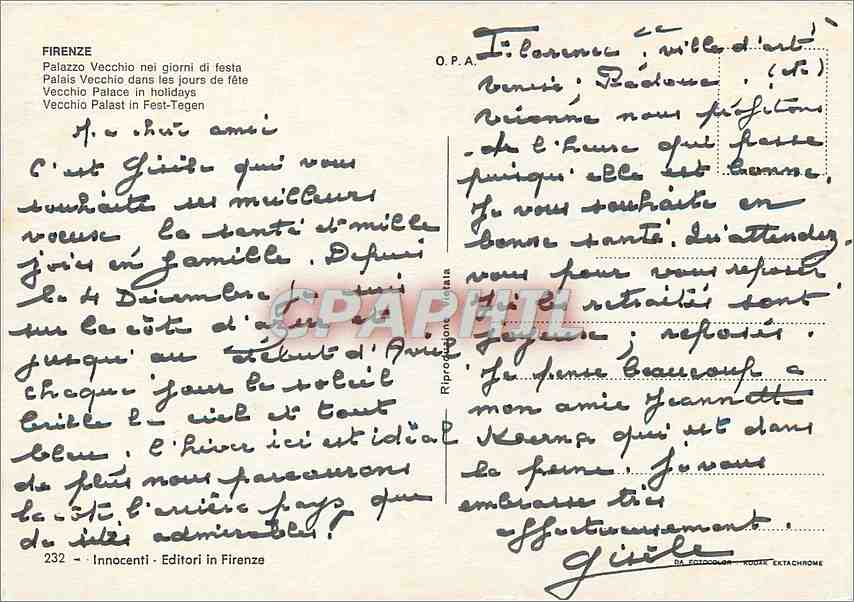 FIRENZE
Palazzo Vecchio nei giorni di festa
Palais Vecchio dans les jours de fête
Vecchio Palace in holidays
Vecchio Palast in Fest-Tegen
Ma chère amie
C'est Gisèle qui vous
souhaite ses meilleurs
voeux la santé et mille
joies en famille. Depuis
le 4 Décembre je suis
sur la côte d'azur et
jusqu'au début d'Avril
chaque jour le soleil
brille le ciel est tout
bleu. l'hiver ici est idéal
de plus nous parcourons
la côte l'arrière pays, que
de sites admirables.
232 - Innocenti - Editori in Firenze
O.P.A.
Riproduzione Vietata
Florence "ville d'art"
venise; Padoue.
veronne nous profitons
de l'heure qui passe
puisqu'elle est bonne.
Je vous souhaite en
bonne santé. Qu'attendez
vous pour vous reposer
ici les retraités sont
joyeux; reposés.
Je pense beaucoup a
mon amie Jeannette
qui est dans
la peine. Je vous
embrasse très
affectueusement.
Gisèle
DA FOTOCOLOR - KODAK EKTACHROME
CPAPHIL